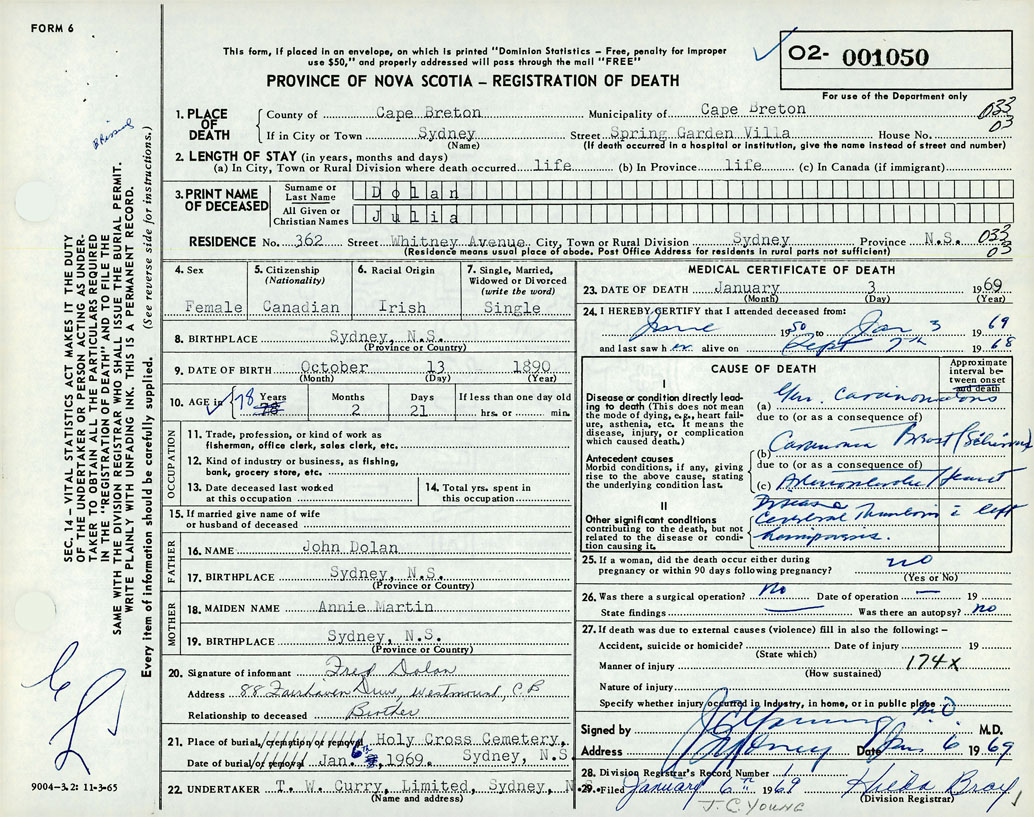 FORM 6
This form, if placed in an envelope, on which is printed "Dominion Statistics – Free, penalty for improper
use $50," and properly addressed will pass through the mail "FREE"
PROVINCE OF NOVA SCOTIA – REGISTRATION OF DEATH
02- 001050
For use of the Department only
1. PLACE OF DEATH
County of Cape Breton Municipality of Cape Breton 033
If in City or Town Sydney Street Spring Garden Villa House No. 03
(Name) (If death occurred in a hospital or institution, give the name instead of street and number)
2. LENGTH OF STAY (in years, months and days)
(a) In City, Town or Rural Division where death occurred life (b) In Province life (c) In Canada (if immigrant)
3. PRINT NAME OF DECEASED
Surname or Last Name Dolan
All Given or Christian Names Julia
RESIDENCE No. 362 Street Whitney Avenue City, Town or Rural Division Sydney Province N.S. 033
(Residence means usual place of abode. Post Office Address for residents in rural parts not sufficient) 03
4. Sex
Female
5. Citizenship
(Nationality)
Canadian
6. Racial Origin
Irish
7. Single, Married,
Widowed or Divorced
(write the word)
Single
8. BIRTHPLACE Sydney, N.S.
(Province or Country)
9. DATE OF BIRTH October 13 1890
(Month) (Day) (Year)
10. AGE in 78 Years 78 Months 2 Days 21 If less than one day old
hrs. or min.
OCCUPATION
11. Trade, profession, or kind of work as
fisherman, office clerk, sales clerk, etc.
12. Kind of industry or business, as fishing,
bank, grocery store, etc.
13. Date deceased last worked
at this occupation
14. Total yrs. spent in
this occupation
15. If married give name of wife
or husband of deceased
FATHER
16. NAME John Dolan
17. BIRTHPLACE Sydney, N.S.
(Province or Country)
MOTHER
18. MAIDEN NAME Annie Martin
19. BIRTHPLACE Sydney, N.S.
(Province or Country)
20. Signature of informant Fred Dolan
Address 88 Fairhaven Drive, Westmount, C.B
Relationship to deceased Brother
21. Place of burial, cremation or removal Holy Cross Cemetery,
Date of burial or removal Jan. 6th, 1969. Sydney, N.S.
22. UNDERTAKER T. W. Curry, Limited, Sydney, N.S.
(Name and address)
MEDICAL CERTIFICATE OF DEATH
23. DATE OF DEATH January 3 1969
(Month) (Day) (Year)
24. I HEREBY CERTIFY that I attended deceased from:
June 1950 to Jan 3 1969
and last saw her alive on Sept 7th 1968
CAUSE OF DEATH
Approximate
interval be-
tween onset
and death
I
Disease or condition directly lead-
ing to death (This does not mean
the mode of dying, e.g., heart fail-
ure, asthenia, etc. It means the
disease, injury, or complication
which caused death.)
(a) Gen.
due to (or as a consequence of)
Antecedent causes
Morbid conditions, if any, giving
rise to the above cause, stating
the underlying condition last.
(b) Carcinoma Breast
due to (or as a consequence of)
(c) Heart
Disease
II
Other significant conditions
contributing to the death, but not
related to the disease or condi-
tion causing it.
Cerebral Thrombosis left
hemiparesis.
25. If a woman, did the death occur either during
pregnancy or within 90 days following pregnancy? no
(Yes or No)
26. Was there a surgical operation? No Date of operation — 19
State findings — Was there an autopsy? no
27. If death was due to external causes (violence) fill in also the following: –
Accident, suicide or homicide? Date of injury 19
(State which)
Manner of injury 174X
(How sustained)
Nature of injury
Specify whether injury occurred in industry, in home, or in public place
Signed by J C Young MD M.D.
Address Sydney Date Jan 6 1969
28. Division Registrar's Record Number 1
29. Filed January 6th 1969 Hilda Bray
(Division Registrar)
J.C. YOUNG
SEC. 14 – VITAL STATISTICS ACT MAKES IT THE DUTY
OF THE UNDERTAKER OR PERSON ACTING AS UNDER-
TAKER TO OBTAIN ALL THE PARTICULARS REQUIRED
IN THE "REGISTRATION OF DEATH" AND TO FILE THE
SAME WITH THE DIVISION REGISTRAR WHO SHALL ISSUE THE BURIAL PERMIT.
WRITE PLAINLY WITH UNFADING INK. THIS IS A PERMANENT RECORD.
Every item of information should be carefully supplied. (See reverse side for instructions.)
9004-3.2: 11-3-65